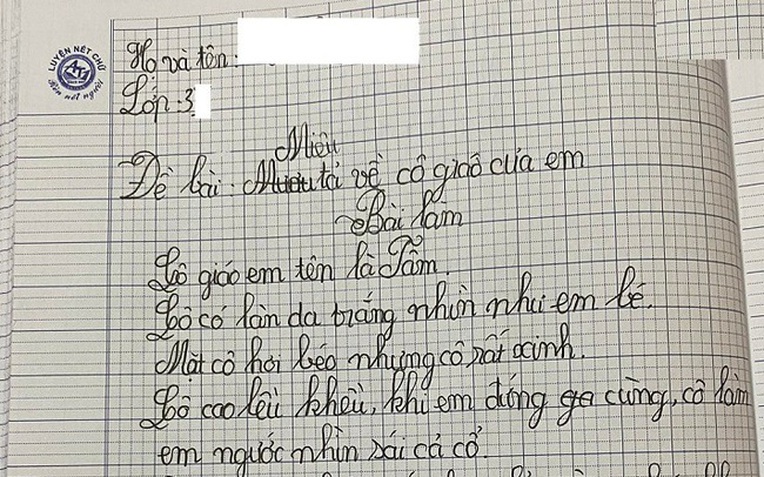 LUYỆN NÉT CHỮ
Rèn nết người
Họ và tên:
Lớp: 3
Miêu
Đề bài: tả về cô giáo của em
Bài làm
Cô giáo em tên là Tâm.
Cô có làn da trắng nhìn như em bé.
Mặt cô hơi béo nhưng cô rất xinh.
Cô cao lêu khêu, khi em đứng ga cùng, cô làm
em ngước nhìn sái cả cổ.